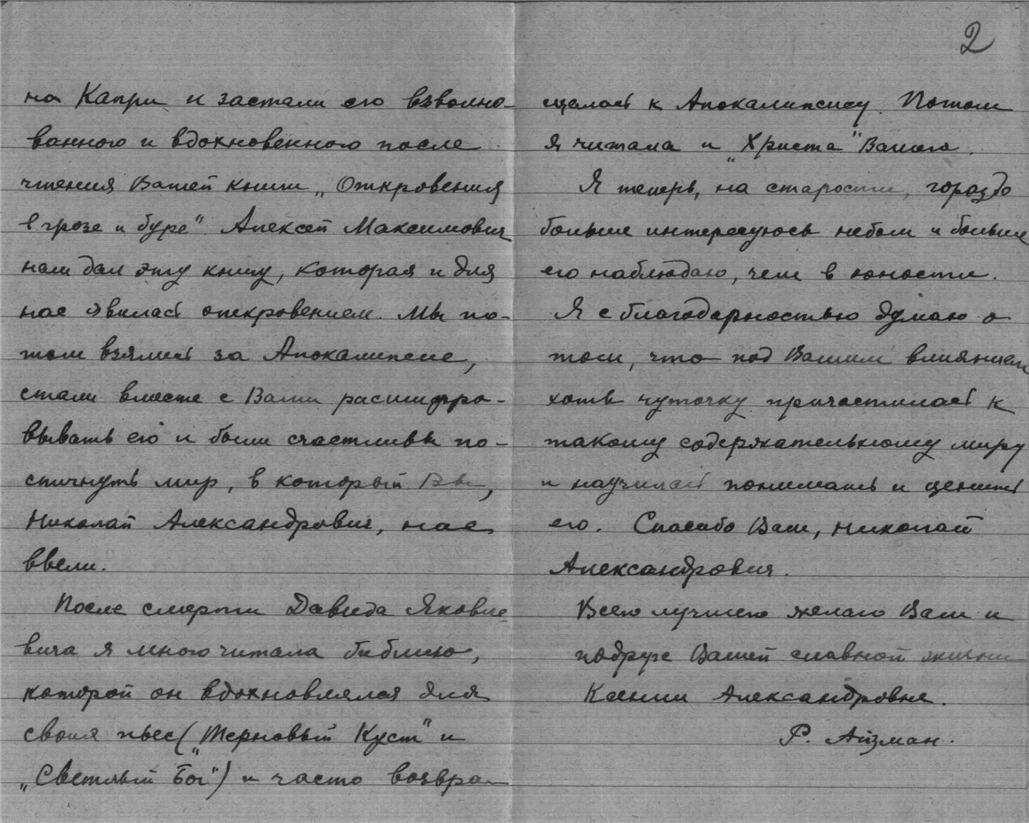 на Капри и застали его взволно-
ванного и вдохновенного после
чтения Вашей книги „Откровения
в грозе и буре". Алексей Максимович
нам дал эту книгу, которая и для
нас явилась откровением. Мы по-
том взялись за Апокалипсис,
стали вместе с Вами расшифро-
вывать его и были счастливы по-
стичнуть мир, в который Вы,
Николай Александрович, нас
ввели.
После смерти Давида Яковле
вича я много читала библию,
которой он вдохновлялся для
своих пьес („Терновый Куст" и
„Светлый Бог") и часто возвра-
2
щалась к Апокалипсису. Потом
я читала и „Христа" Вашего.
Я теперь, на старости, гораздо
больше интересуюсь небом и больше
его наблюдаю, чем в юности.
Я с благодарностью думаю о
том, что под Вашим влиянием
хоть чуточку причастилась к
такому содержательному миру
и научилась понимать и ценить
его. Спасибо Вам, Николай
Александрович.
Всего лучшего желаю Вам и
подруге Вашей славной жизни
Ксении Александровне.
Р. Айзман.